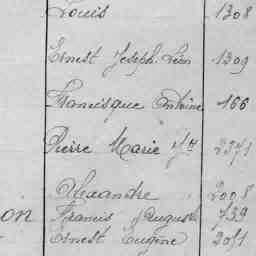 Louis 1308
Ernest Joseph Léon 1309
Francisque Antoine 166
Pierre Marie Jh 2371
Alexandre 2008
on Francis Auguste 739
Ernest Eugène 2051